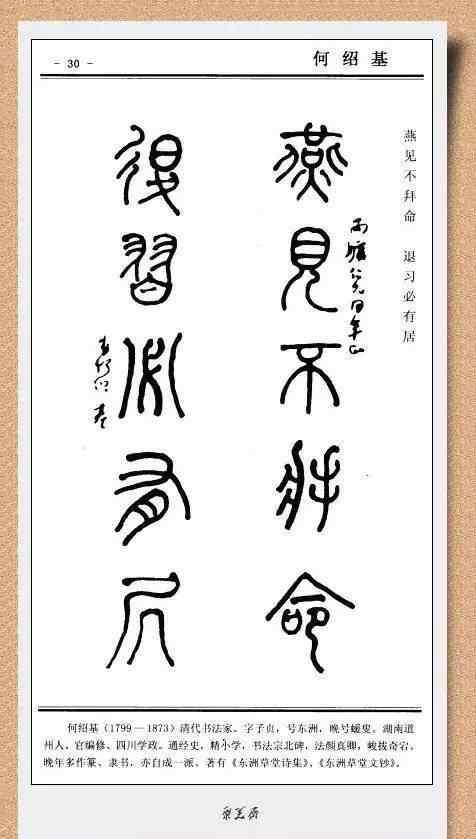 - 30 -
何绍基
燕见不拜命 退习必有居
燕見不拜命
退習必有居
何绍基(1799—1873)清代书法家、字子贞,号东洲,晚号蝯叟。湖南道
州人、官编修、四川学政。通经史,精小学,书法宗北碑,法颜真卿,峻拔奇宕,
晚年多作篆、隶书,亦自成一派、著有《东洲草堂诗集》、《东洲草堂文钞》。